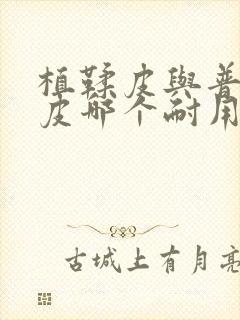 植鞣皮與普
皮哪个耐用
古城上有月亮